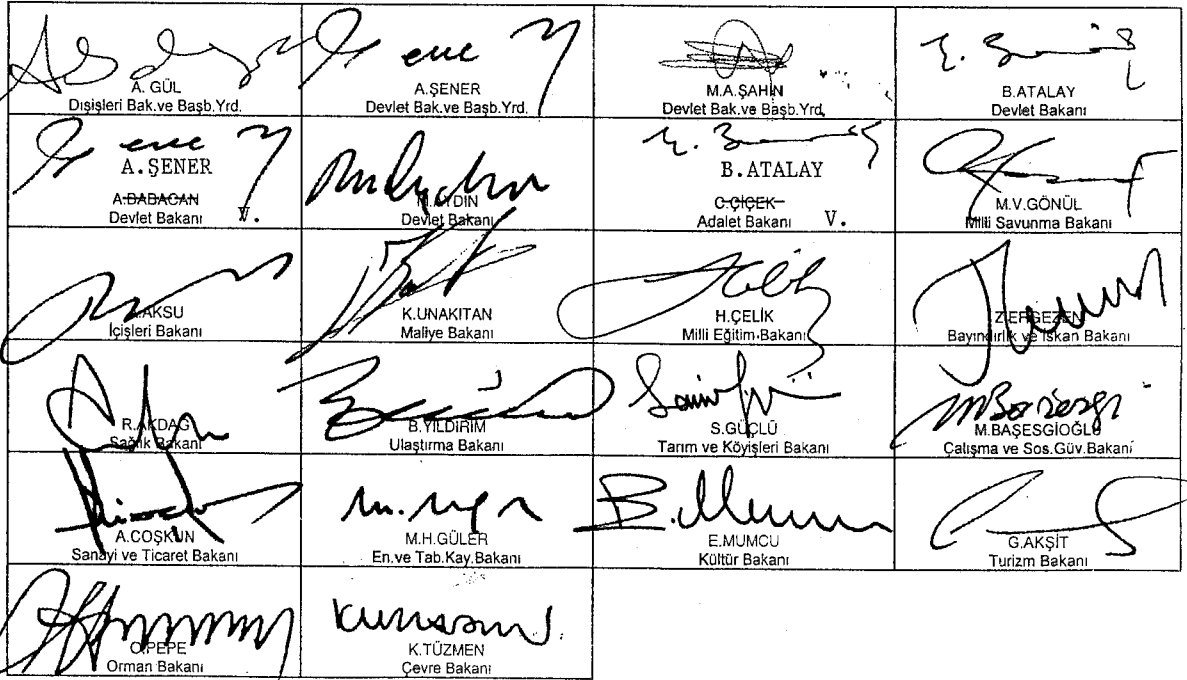 A. GÜL
Dışişleri Bak.ve Başb.Yrd.
A.ŞENER
Devlet Bak.ve Başb.Yrd.
M.A.ŞAHİN
Devlet Bak.ve Başb.Yrd.
B.ATALAY
Devlet Bakanı
A.ŞENER
A.BABACAN
Devlet Bakanı V.
M.AYDIN
Devlet Bakanı
B.ATALAY
C.ÇİÇEK
Adalet Bakanı V.
M.V.GÖNÜL
Milli Savunma Bakanı
AKSU
İçişleri Bakanı
K.UNAKITAN
Maliye Bakanı
H.ÇELİK
Milli Eğitim Bakanı
Z.ERGEZEN
Bayındırlık ve İskan Bakanı
R.AKDAĞ
Sağlık Bakanı
B.YILDIRIM
Ulaştırma Bakanı
S.GÜÇLÜ
Tarım ve Köyişleri Bakanı
M.BAŞESGİOĞLU
Çalışma ve Sos.Güv.Bakanı
A.COŞKUN
Sanayi ve Ticaret Bakanı
M.H.GÜLER
En.ve Tab.Kay.Bakanı
E.MUMCU
Kültür Bakanı
G.AKŞİT
Turizm Bakanı
O.PEPE
Orman Bakanı
K.TÜZMEN
Çevre Bakanı